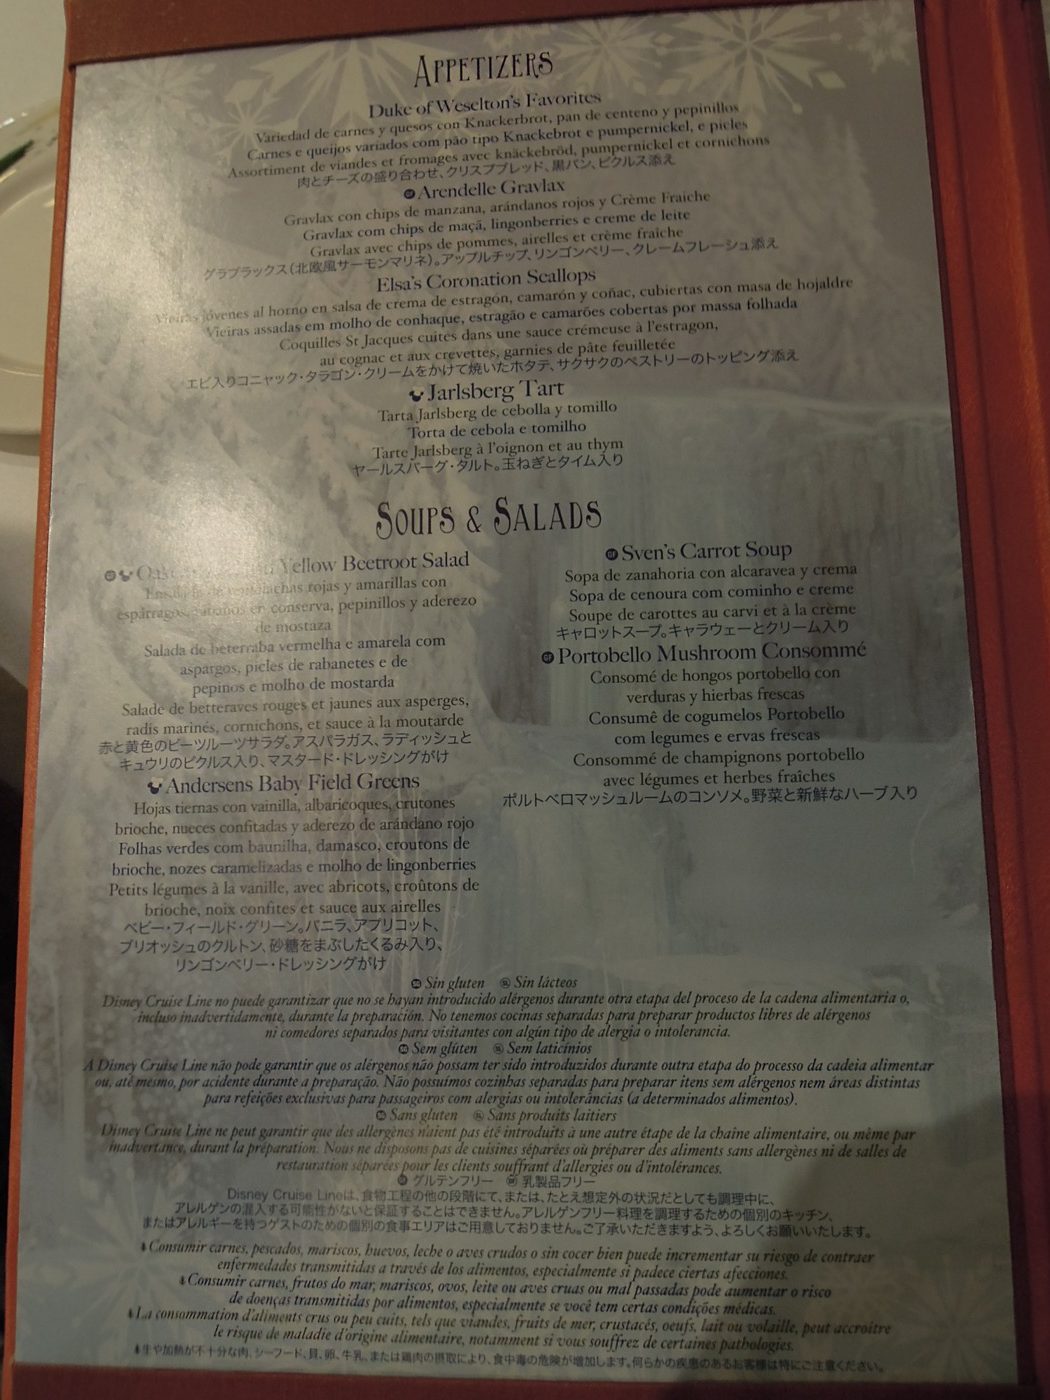 APPETIZERS
Duke of Weselton's Favorites
Variedad de carnes y quesos con Knackerbrot, pan de centeno y pepinillos
Carnes e queijos variados com pão tipo Knackebrot e pumpernickel, e picles
Assortiment de viandes et fromages avec knäckebröd, pumpernickel et cornichons
肉とチーズの盛り合わせ、クリスプブレッド、黒パン、ピクルス添え
GF Arendelle Gravlax
Gravlax con chips de manzana, arándanos rojos y Crème Fraiche
Gravlax com chips de maçã, lingonberries e creme de leite
Gravlax avec chips de pommes, airelles et crème fraîche
グラブラックス(北欧風サーモンマリネ)。アップルチップ、リンゴンベリー、クレームフレーシュ添え
Elsa's Coronation Scallops
Vieiras jóvenes al horno en salsa de crema de estragón, camarón y coñac, cubiertas con masa de hojaldre
Vieiras assadas em molho de conhaque, estragão e camarões cobertas por massa folhada
Coquilles St Jacques cuites dans une sauce crémeuse à l'estragon,
au cognac et aux crevettes, garnies de pâte feuilletée
エビ入りコニャック・タラゴン・クリームをかけて焼いたホタテ、サクサクのペストリーのトッピング添え
Jarlsberg Tart
Tarta Jarlsberg de cebolla y tomillo
Torta de cebola e tomilho
Tarte Jarlsberg à l'oignon et au thym
ヤールスバーグ・タルト。玉ねぎとタイム入り
SOUPS & SALADS
Yellow Beetroot Salad
rojas y amarillas con
en conserva, pepinillos y aderezo
de mostaza
Salada de beterraba vermelha e amarela com
aspargos, picles de rabanetes e de
pepinos e molho de mostarda
Salade de betteraves rouges et jaunes aux asperges,
radis marinés, cornichons, et sauce à la moutarde
赤と黄色のビーツルーツサラダ。アスパラガス、ラディッシュと
キュウリのピクルス入り、マスタード・ドレッシングがけ
Andersens Baby Field Greens
Hojas tiernas con vainilla, albaricoques, crutones
brioche, nueces confitadas y aderezo de arándano rojo
Folhas verdes com baunilha, damasco, croutons de
brioche, nozes caramelizadas e molho de lingonberries
Petits légumes à la vanille, avec abricots, croûtons de
brioche, noix confites et sauce aux airelles
ベビー・フィールド・グリーン。バニラ、アプリコット、
ブリオッシュのクルトン、砂糖をまぶしたくるみ入り、
リンゴンベリー・ドレッシングがけ
GF Sven's Carrot Soup
Sopa de zanahoria con alcaravea y crema
Sopa de cenoura com cominho e creme
Soupe de carottes au carvi et à la crème
キャロットスープ。キャラウェーとクリーム入り
GF Portobello Mushroom Consommé
Consomé de hongos portobello con
verduras y hierbas frescas
Consumê de cogumelos Portobello
com legumes e ervas frescas
Consommé de champignons portobello
avec légumes et herbes fraîches
ポルトベロマッシュルームのコンソメ。野菜と新鮮なハーブ入り
Sin gluten Sin lácteos
Disney Cruise Line no puede garantizar que no se hayan introducido alérgenos durante otra etapa del proceso de la cadena alimentaria o,
incluso inadvertidamente, durante la preparación. No tenemos cocinas separadas para preparar productos libres de alérgenos
ni comedores separados para visitantes con algún tipo de alergia o intolerancia.
Sem glúten Sem laticínios
A Disney Cruise Line não pode garantir que os alérgenos não possam ter sido introduzidos durante outra etapa do processo da cadeia alimentar
ou, até mesmo, por acidente durante a preparação. Não possuímos cozinhas separadas para preparar itens sem alérgenos nem áreas distintas
para refeições exclusivas para passageiros com alergias ou intolerâncias (a determinados alimentos).
Sans gluten Sans produits laitiers
Disney Cruise Line ne peut garantir que des allergènes n'aient pas été introduits à une autre étape de la chaîne alimentaire, ou même par
inadvertance, durant la préparation. Nous ne disposons pas de cuisines séparées où préparer des aliments sans allergènes ni de salles de
restauration séparées pour les clients souffrant d'allergies ou d'intolérances.
グルテンフリー 乳製品フリー
Disney Cruise Lineは、食物工程の他の段階にて、または、たとえ想定外の状況だとしても調理中に、
アレルゲンの混入する可能性がないと保証することはできません。アレルゲンフリー料理を調理するための個別のキッチン、
またはアレルギーを持つゲストのための個別の食事エリアはご用意しておりません。ご了承いただきますよう、よろしくお願いいたします。
Consumir carnes, pescados, mariscos, huevos, leche o aves crudos o sin cocer bien puede incrementar su riesgo de contraer
enfermedades transmitidas a través de los alimentos, especialmente si padece ciertas afecciones.
Consumir carnes, frutos do mar, mariscos, ovos, leite ou aves cruas ou mal passadas pode aumentar o risco
de doenças transmitidas por alimentos, especialmente se você tem certas condições médicas.
La consommation d'aliments crus ou peu cuits, tels que viandes, fruits de mer, crustacés, oeufs, lait ou volaille, peut accroitre
le risque de maladie d'origine alimentaire, notamment si vous souffrez de certaines pathologies.
生や加熱が不十分な肉、シーフード、貝、卵、牛乳、または鶏肉の摂取により、食中毒の危険が増加します。何らかの疾患のあるお客様は特にご注意ください。